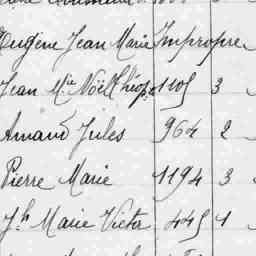 Eugène Jean Marie Impropre
Jean Mie Noël Théop. 1105 3
Amand Jules 964 2
Pierre Marie 1194 3
Jh Marie Victor 445 1